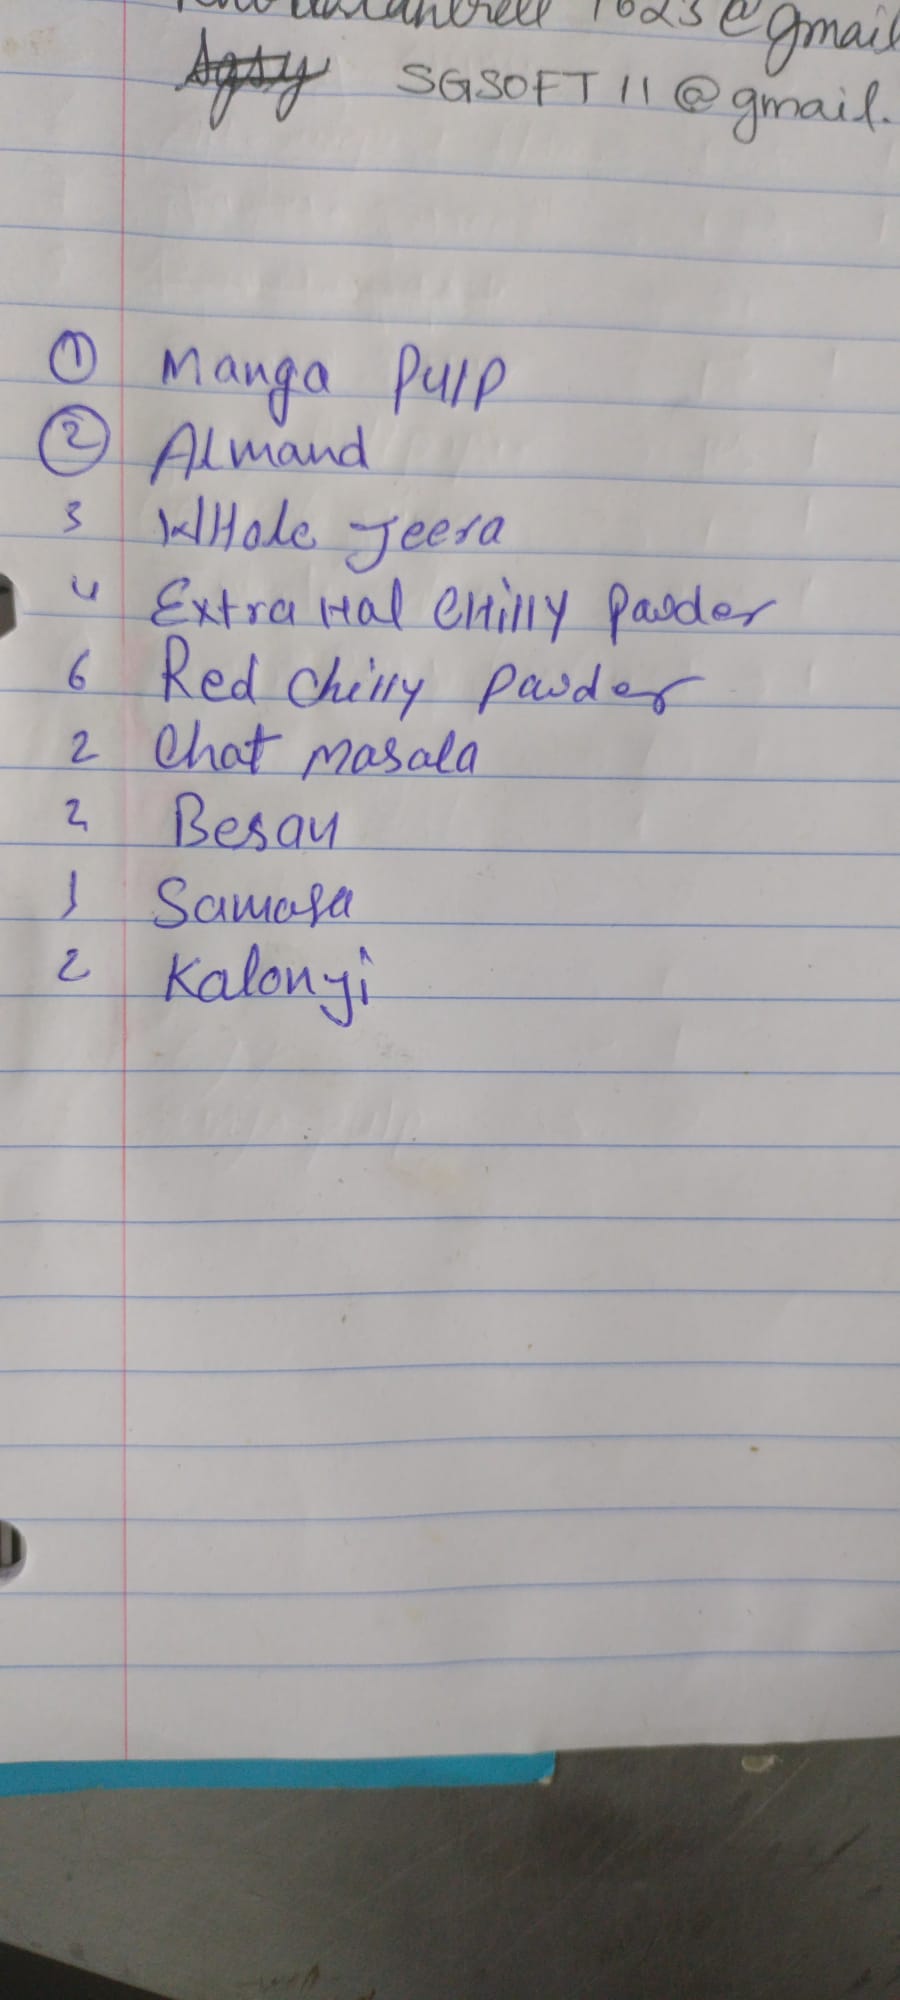 1623@gmail
SGSOFT11@gmail.
① Manga Pulp
② Almand
3 WHole Jeera
4 Extra Hal CHilly Pawder
6 Red Chilly Pawder
2 Chat Masala
2 Besan
1 Samasa
2 Kalonji